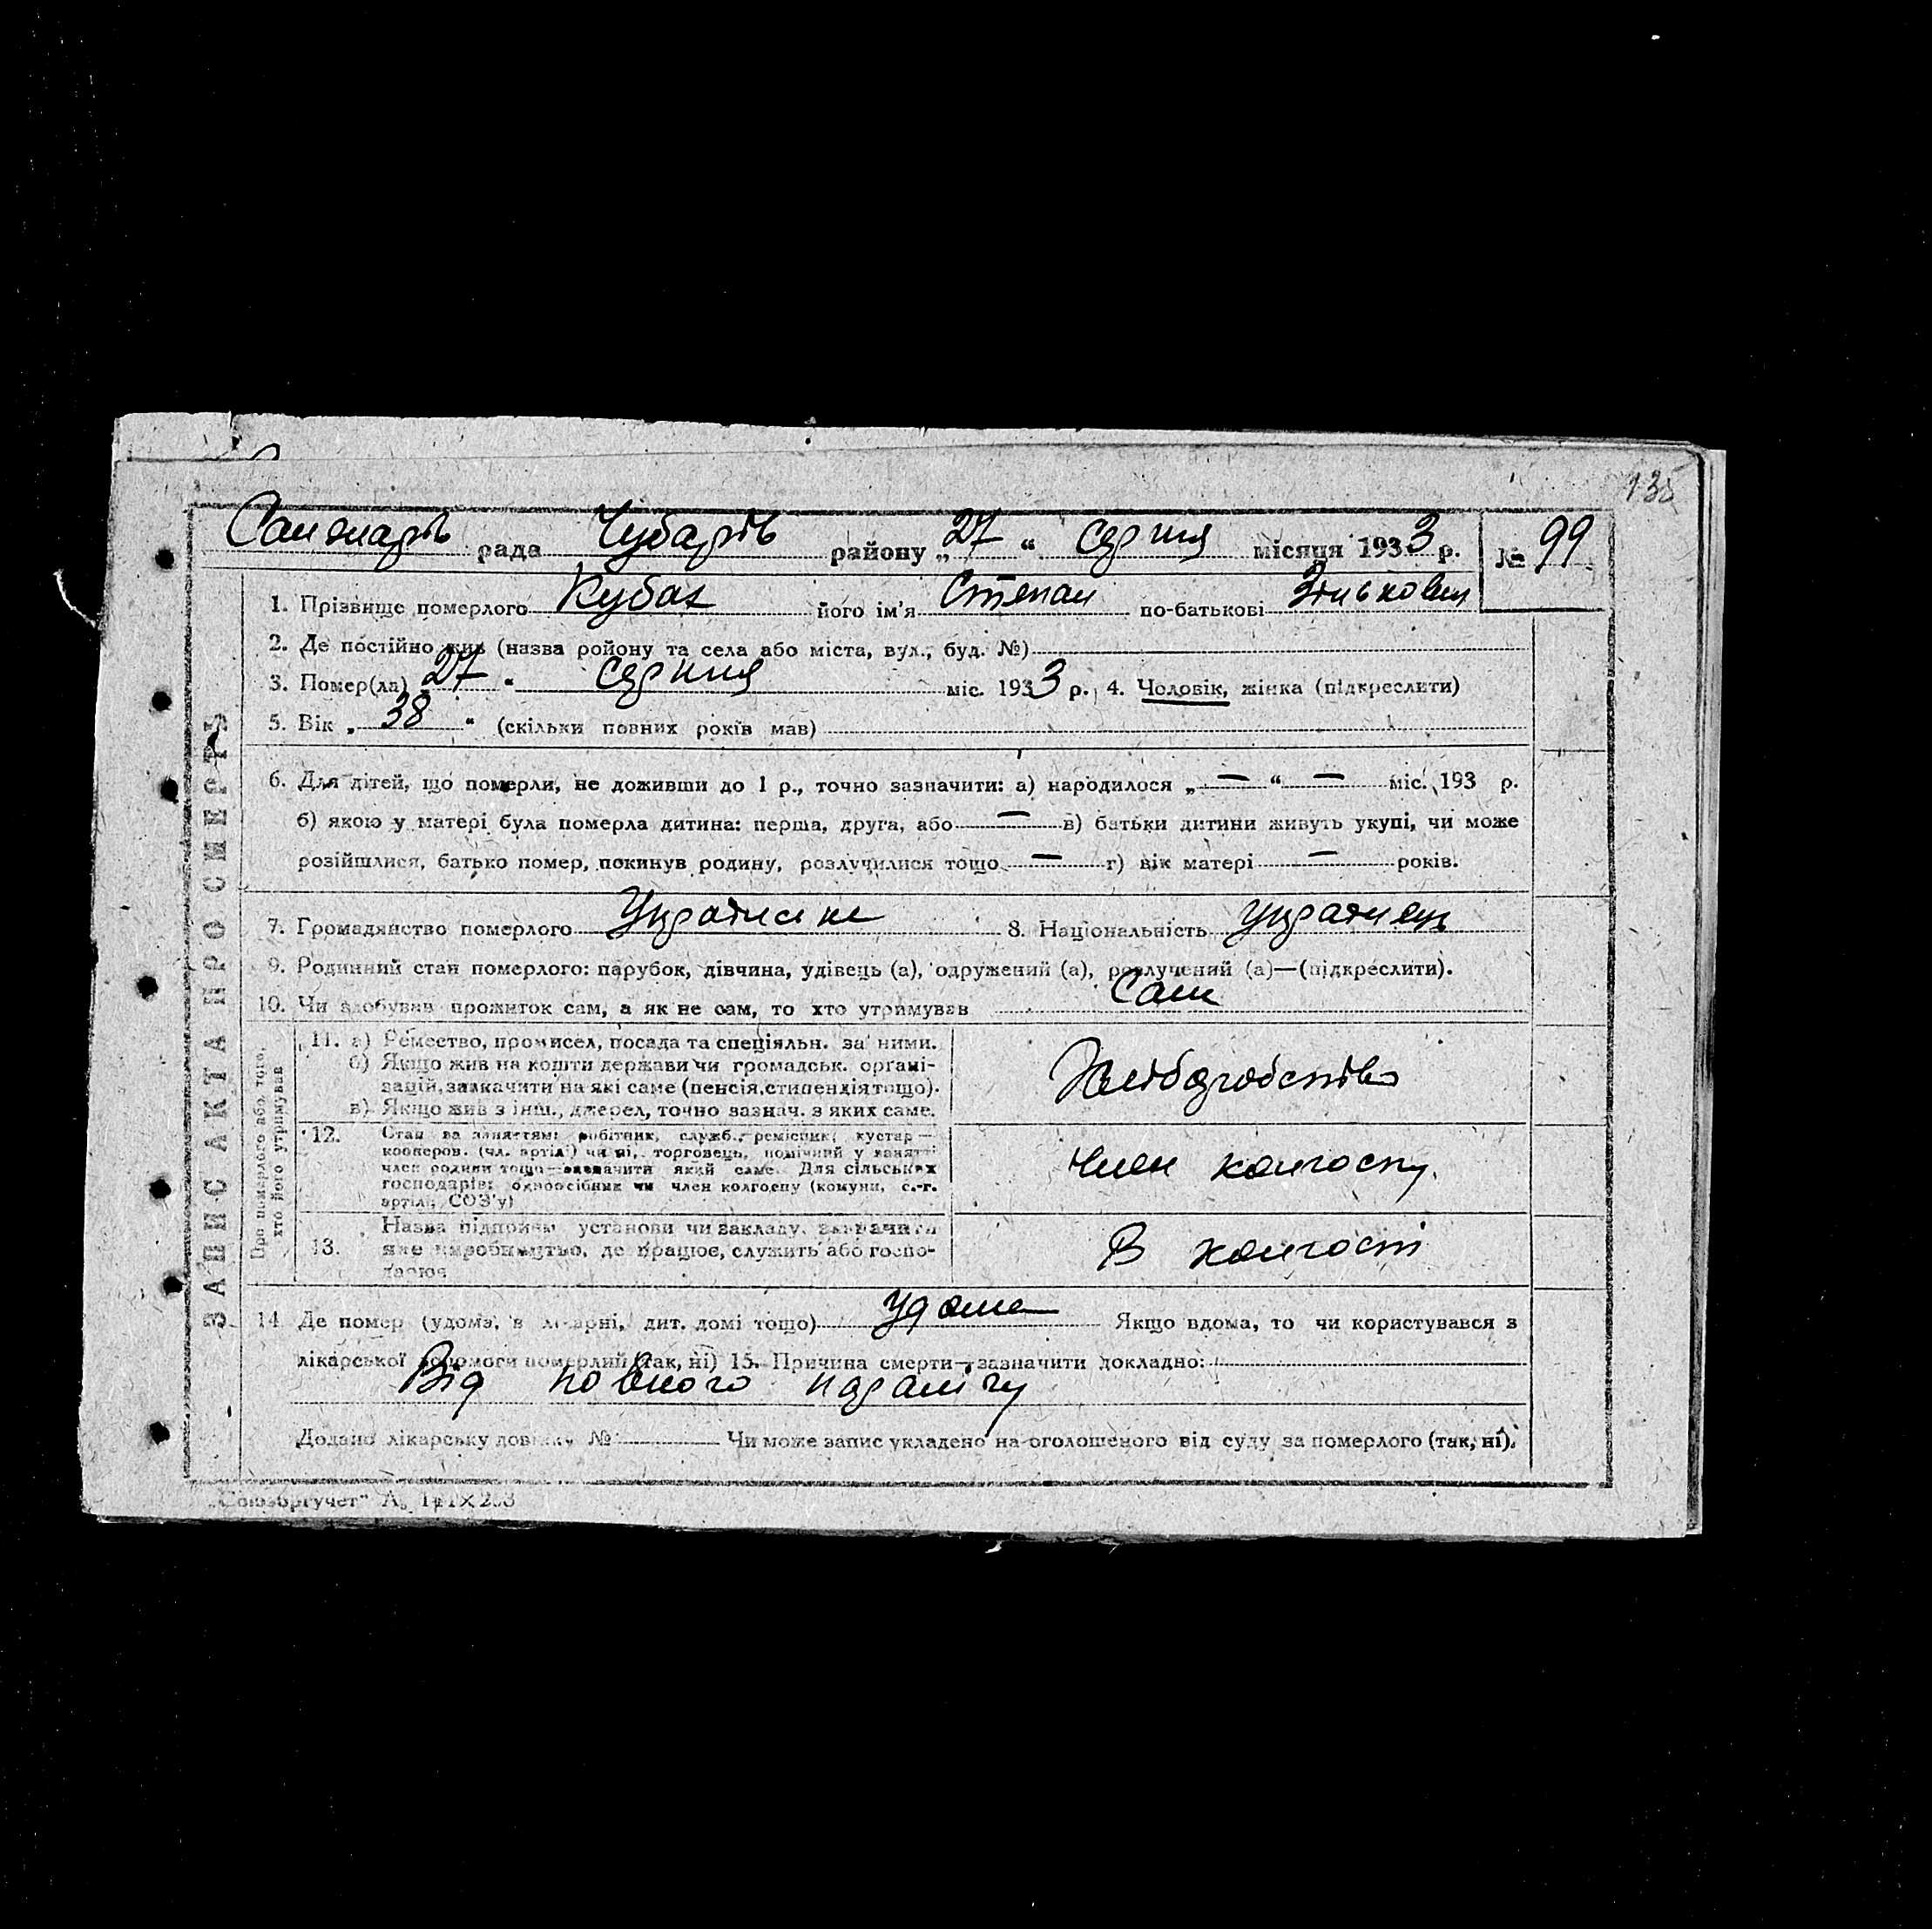 135
рада Чубарів району „27“ серпня місяця 1933 р. № 99
1. Прізвище померлого Кубах його ім'я Степан по-батькові
2. Де постійно жив (назва ройону та села або міста, вул., буд. №)
3. Помер(ла) „27“ серпня міс. 1933 р. 4. Чоловік, жінка (підкреслити)
5. Вік „38“ (скільки повних років мав)
6. Для дітей, що померли, не доживши до 1 р., точно зазначити: а) народилося „—“ — міс. 193 р.
б) якою у матері була померла дитина: перша, друга, або — в) батьки дитини живуть укупі, чи може
розійшлися, батько помер, покинув родину, розлучилися тощо — г) вік матері — років.
7. Громадянство померлого 8. Національність Українец
9. Родинний стан померлого: парубок, дівчина, удівець (а), одружений (а), розлучений (а)—(підкреслити).
10. Чи здобував прожиток сам, а як не сам, то хто утримував Сам
ЗАПИС АКТА ПРО СМЕРТЬ
Про померлого або того,
хто його утримував
11. а) Ремество, промисел, посада та спеціяльн. за ними.
б) Якщо жив на кошти держави чи громадськ. орґані-
зацій, зазначити на які саме (пенсія, стипендія тощо).
в) Якщо жив з інш., джерел, точно зазнач. з яких саме.
Хліборобство
12. Стан за заняттям: робітник, служб., ремісник, кустар —
кооперов. (чл. артілі) чи ні, торговець, помічний у занятті
член родини тощо—зазначити який саме. Для сільських
господарів: одноосібник чи член колгоспу (комуни, с.-г.
артілі, СОЗ'у)
член колгоспу.
13. Назва підприєм. установи чи закладу, зазначити
яке виробництво, де працює, служить або госпо-
дарює
В колгоспі
14. Де помер (удома, в лікарні, дит. домі тощо) Удома Якщо вдома, то чи користувався з
лікарської допомоги померлий (так, ні) 15. Причина смерти—зазначити докладно:
Від повного паралічу
Додано лікарську довідку № Чи може запис укладено на оголошеного від суду за померлого (так, ні).
„Союзоргучет“